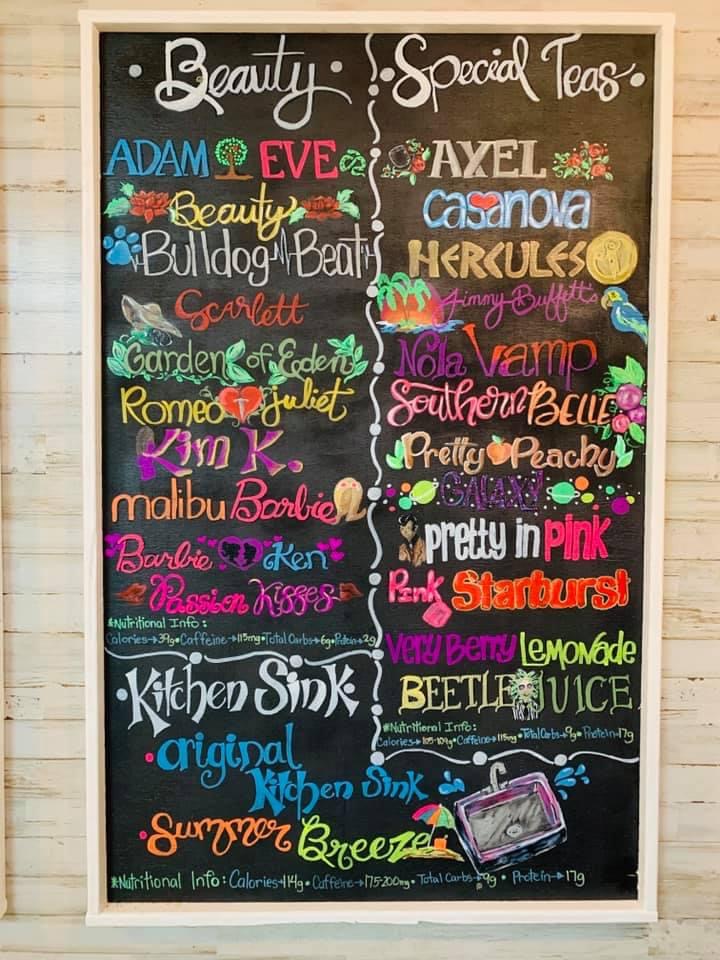 Beauty
ADAM EVE
Beauty
Bulldog Beat
Scarlett
Garden of Eeden
Romeo Juliet
Kim K.
malibu Barbie
Barbie Ken
Passion Kisses
*Nutritional Info:
Calories→39g•Caffeine→115mg•Total Carbs→6g•Protein→2g
Special Teas
AXEL
Casanova
HERCULES
Jimmy Buffett's
Nola Vamp
Southern BELLE
Pretty Peachy
GALAXY
pretty in pink
Pink Starburst
Very Berry Lemonade
BEETLEJUICE
*Nutritional Info:
Calories→105-109g•Caffeine→115mg•Total Carbs→9g•Protein→17g
Kitchen Sink
Original
Kitchen Sink
Summer Breeze
*Nutritional Info: Calories→114g • Caffeine→175-200mg • Total Carbs→9g • Protein→17g